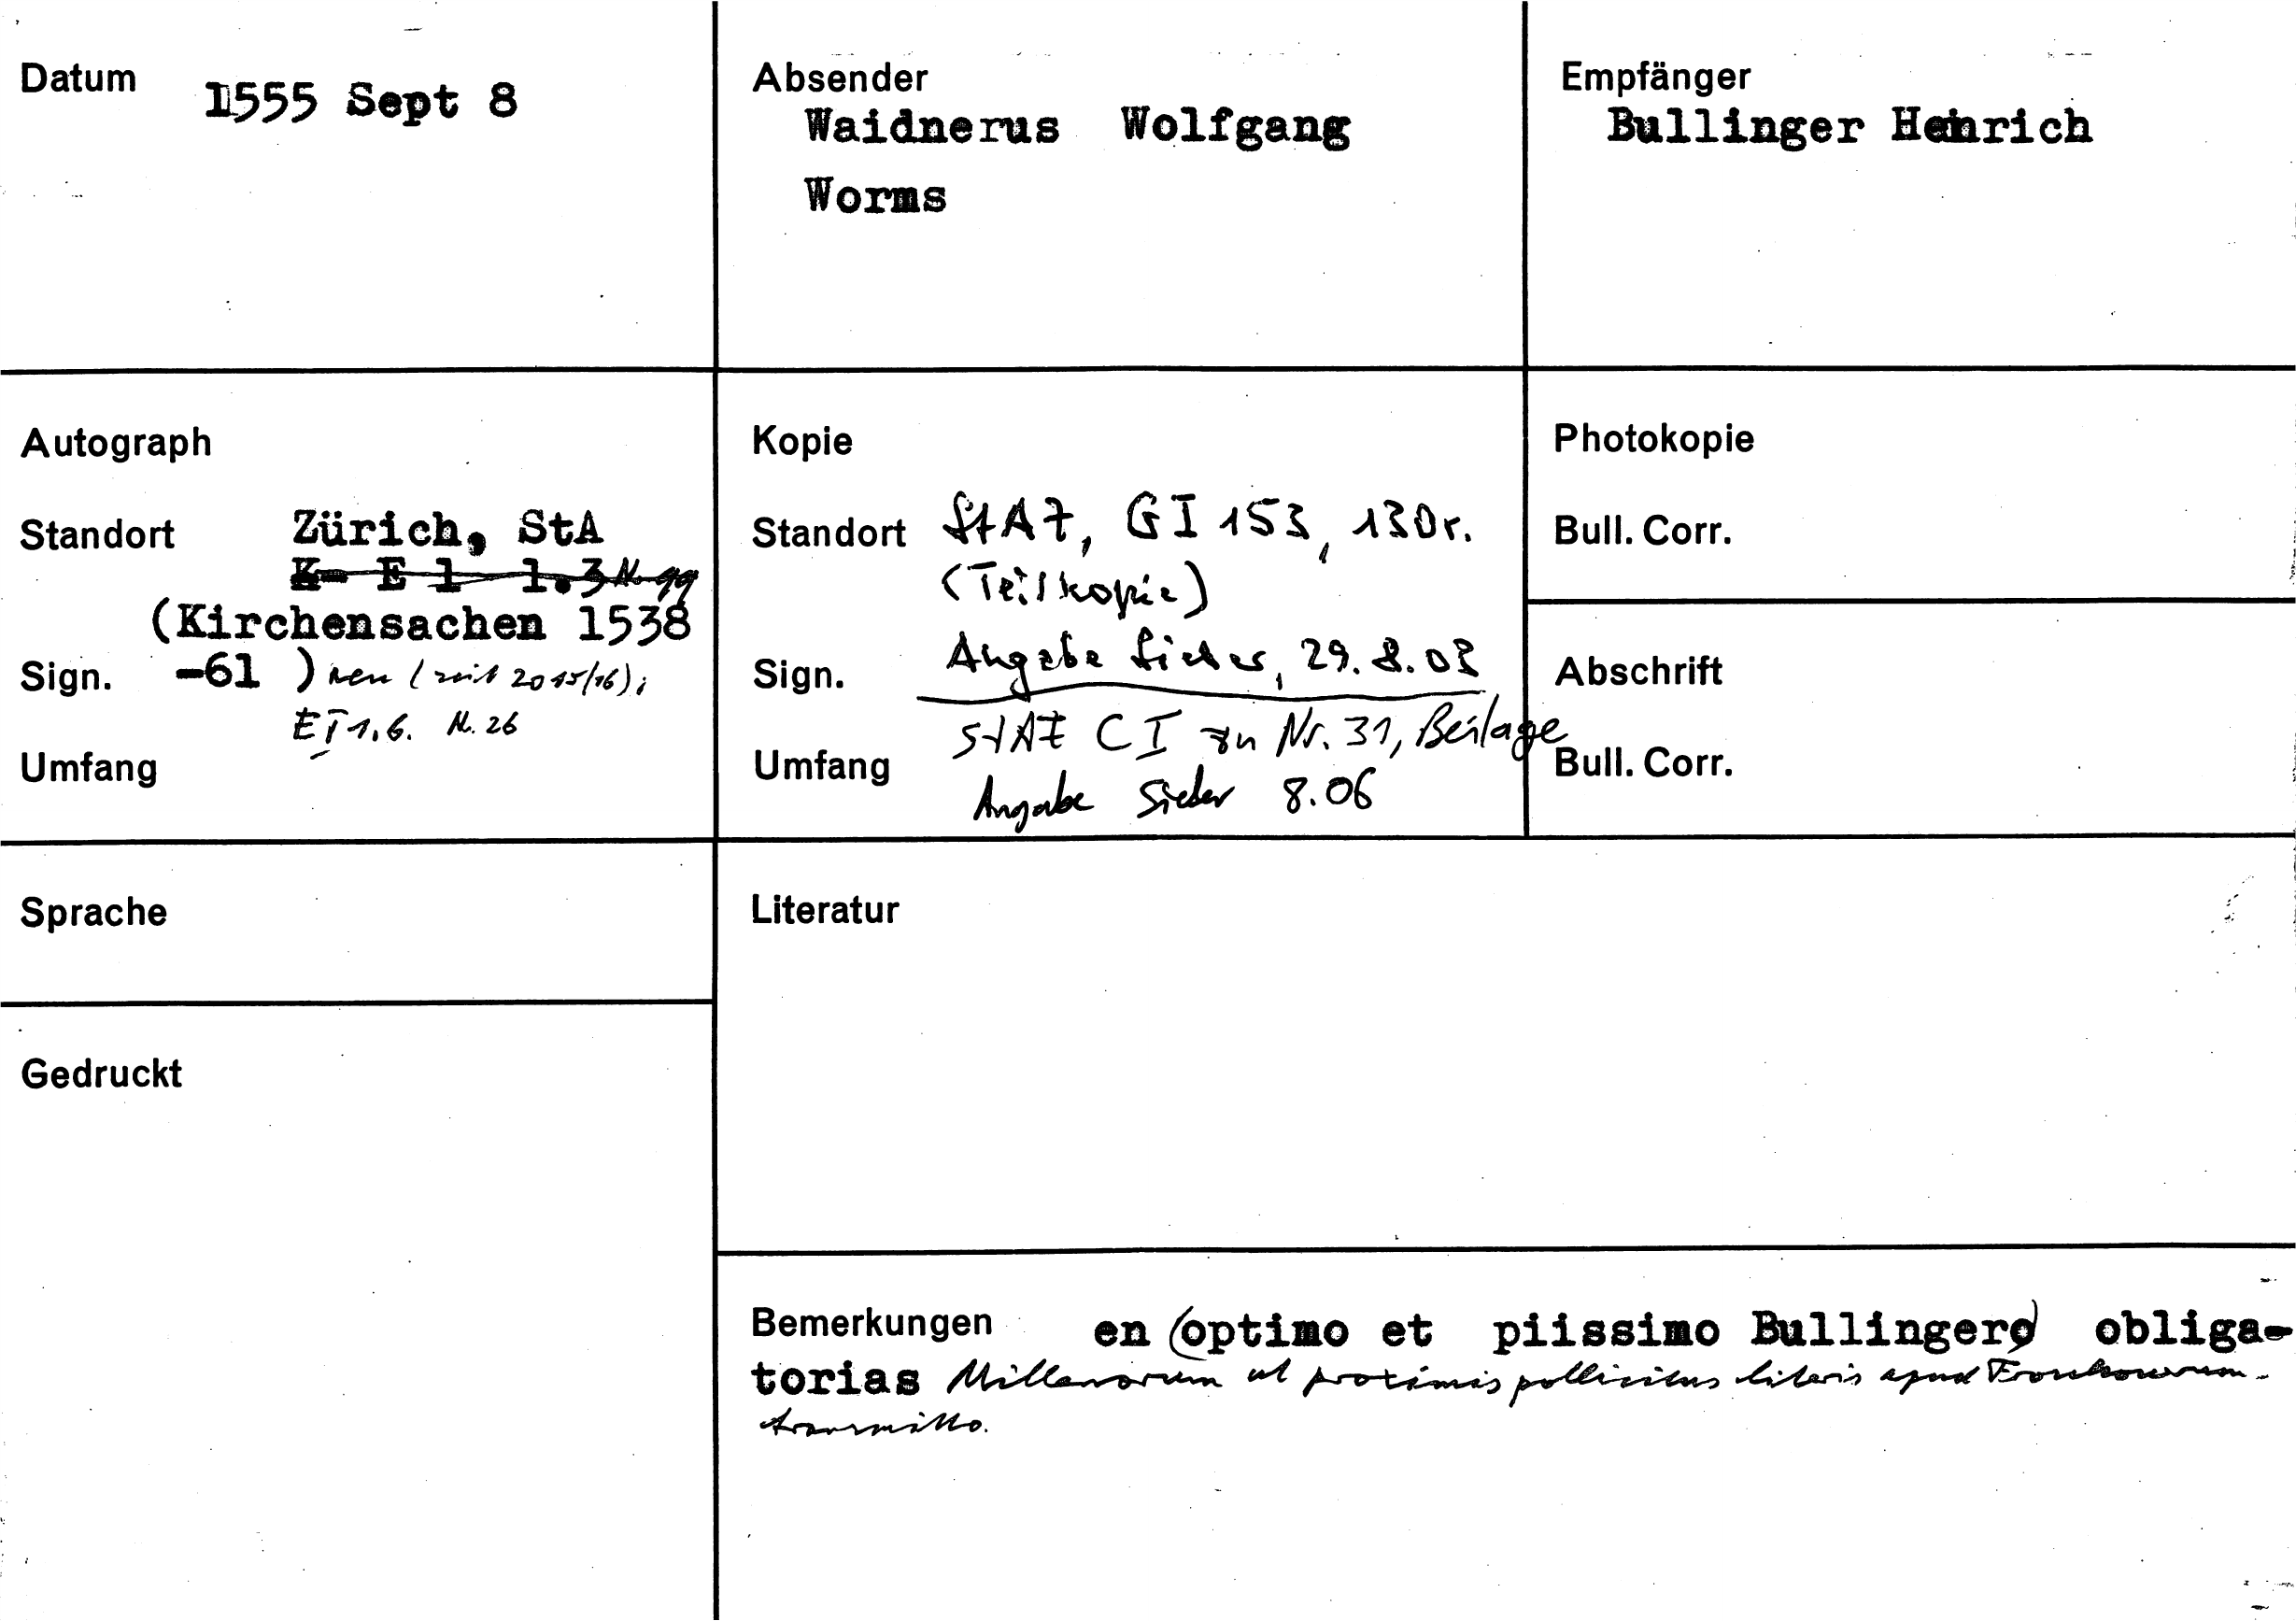 Datum 1555 Sept 8
Absender
Waidnerus Wolfgang
Worms
Empfänger
Bullinger Heinrich
Autograph
Standort Zürich, StA
K- E 1 1.3 N. 99
(Kirchensachen 1538
Sign. -61 ) neu (seit 2015/16);
E I 1.6. N. 26
Umfang
Kopie
Standort StAZ, G I 153, 130r.
(Teilkopie)
Sign. Angabe Sieber, 29.8.03
StAZ C I zu Nr. 31, Beilage
Umfang
Angabe Sieber 8.06
Photokopie
Bull. Corr.
Abschrift
Bull. Corr.
Sprache
Gedruckt
Literatur
Bemerkungen en (optimo et piissimo Bullingero) obliga-
torias Millanorum ut proximis pollicitus literis apud Froschouerum
transmitto.